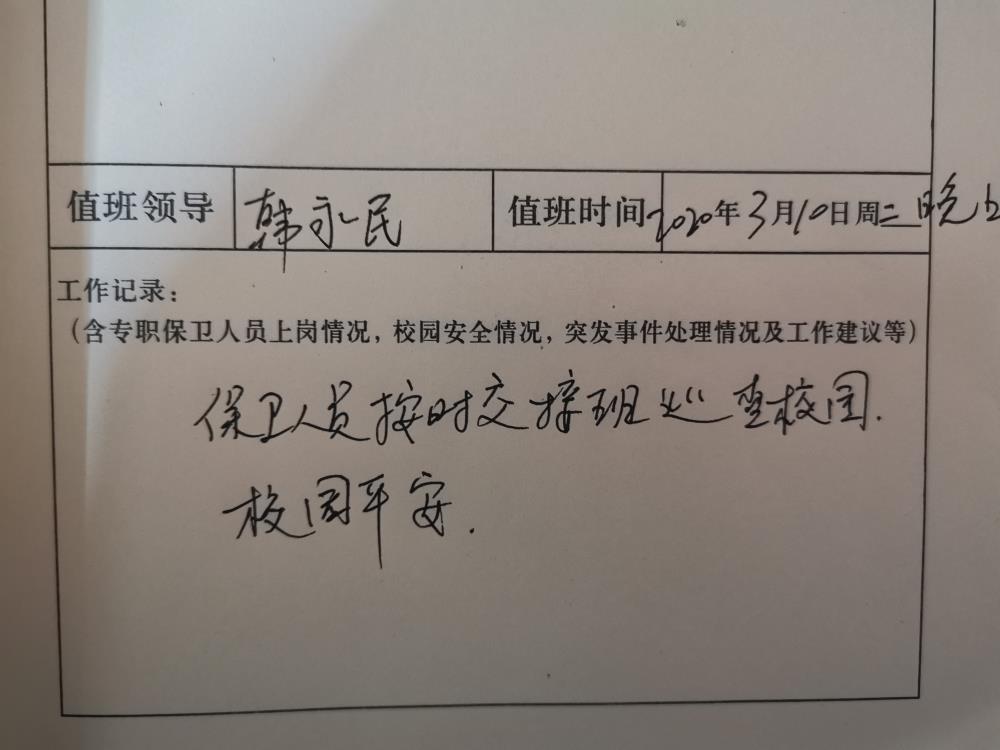 值班领导 韩永民 值班时间 2020年3月10日周二晚上
工作记录：
（含专职保卫人员上岗情况，校园安全情况，突发事件处理情况及工作建议等）
保卫人员按时交接班巡查校园.
校园平安.